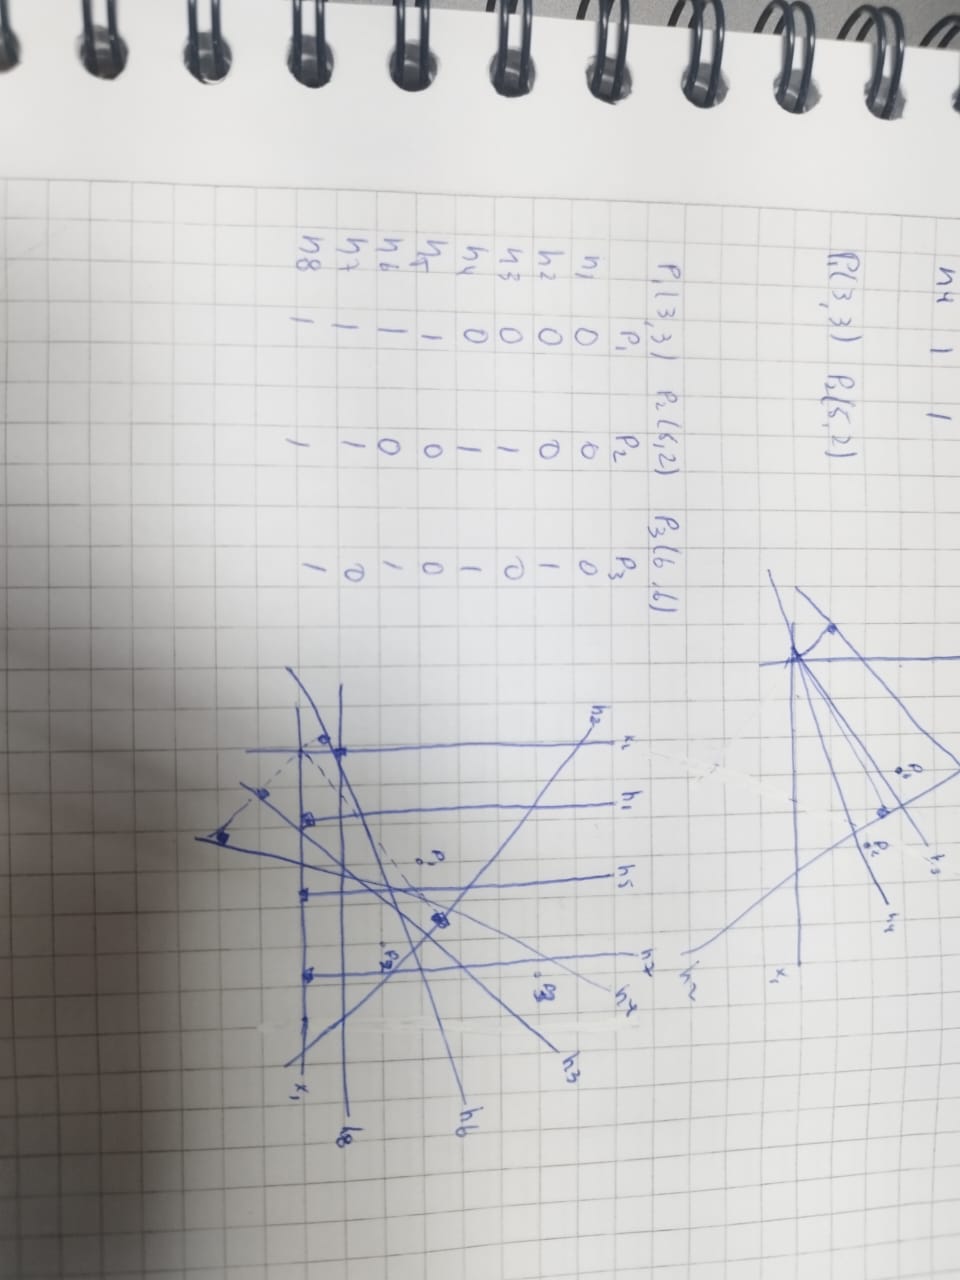 h4 1 1
P1(3,3) P2(5,2)
h3
P1
h4
P2
x1
h2
P1(3,3) P2(5,2) P3(6,6)
P1 P2 P3
h1 0 0 0
h2 0 0 1
h3 0 1 0
h4 0 1 1
h5 1 0 0
h6 1 0 1
h7 1 1 0
h8 1 1 1
x2 h1 h5 h7
h2 h4
h3
P3
h6
P1
P2
h8
x1